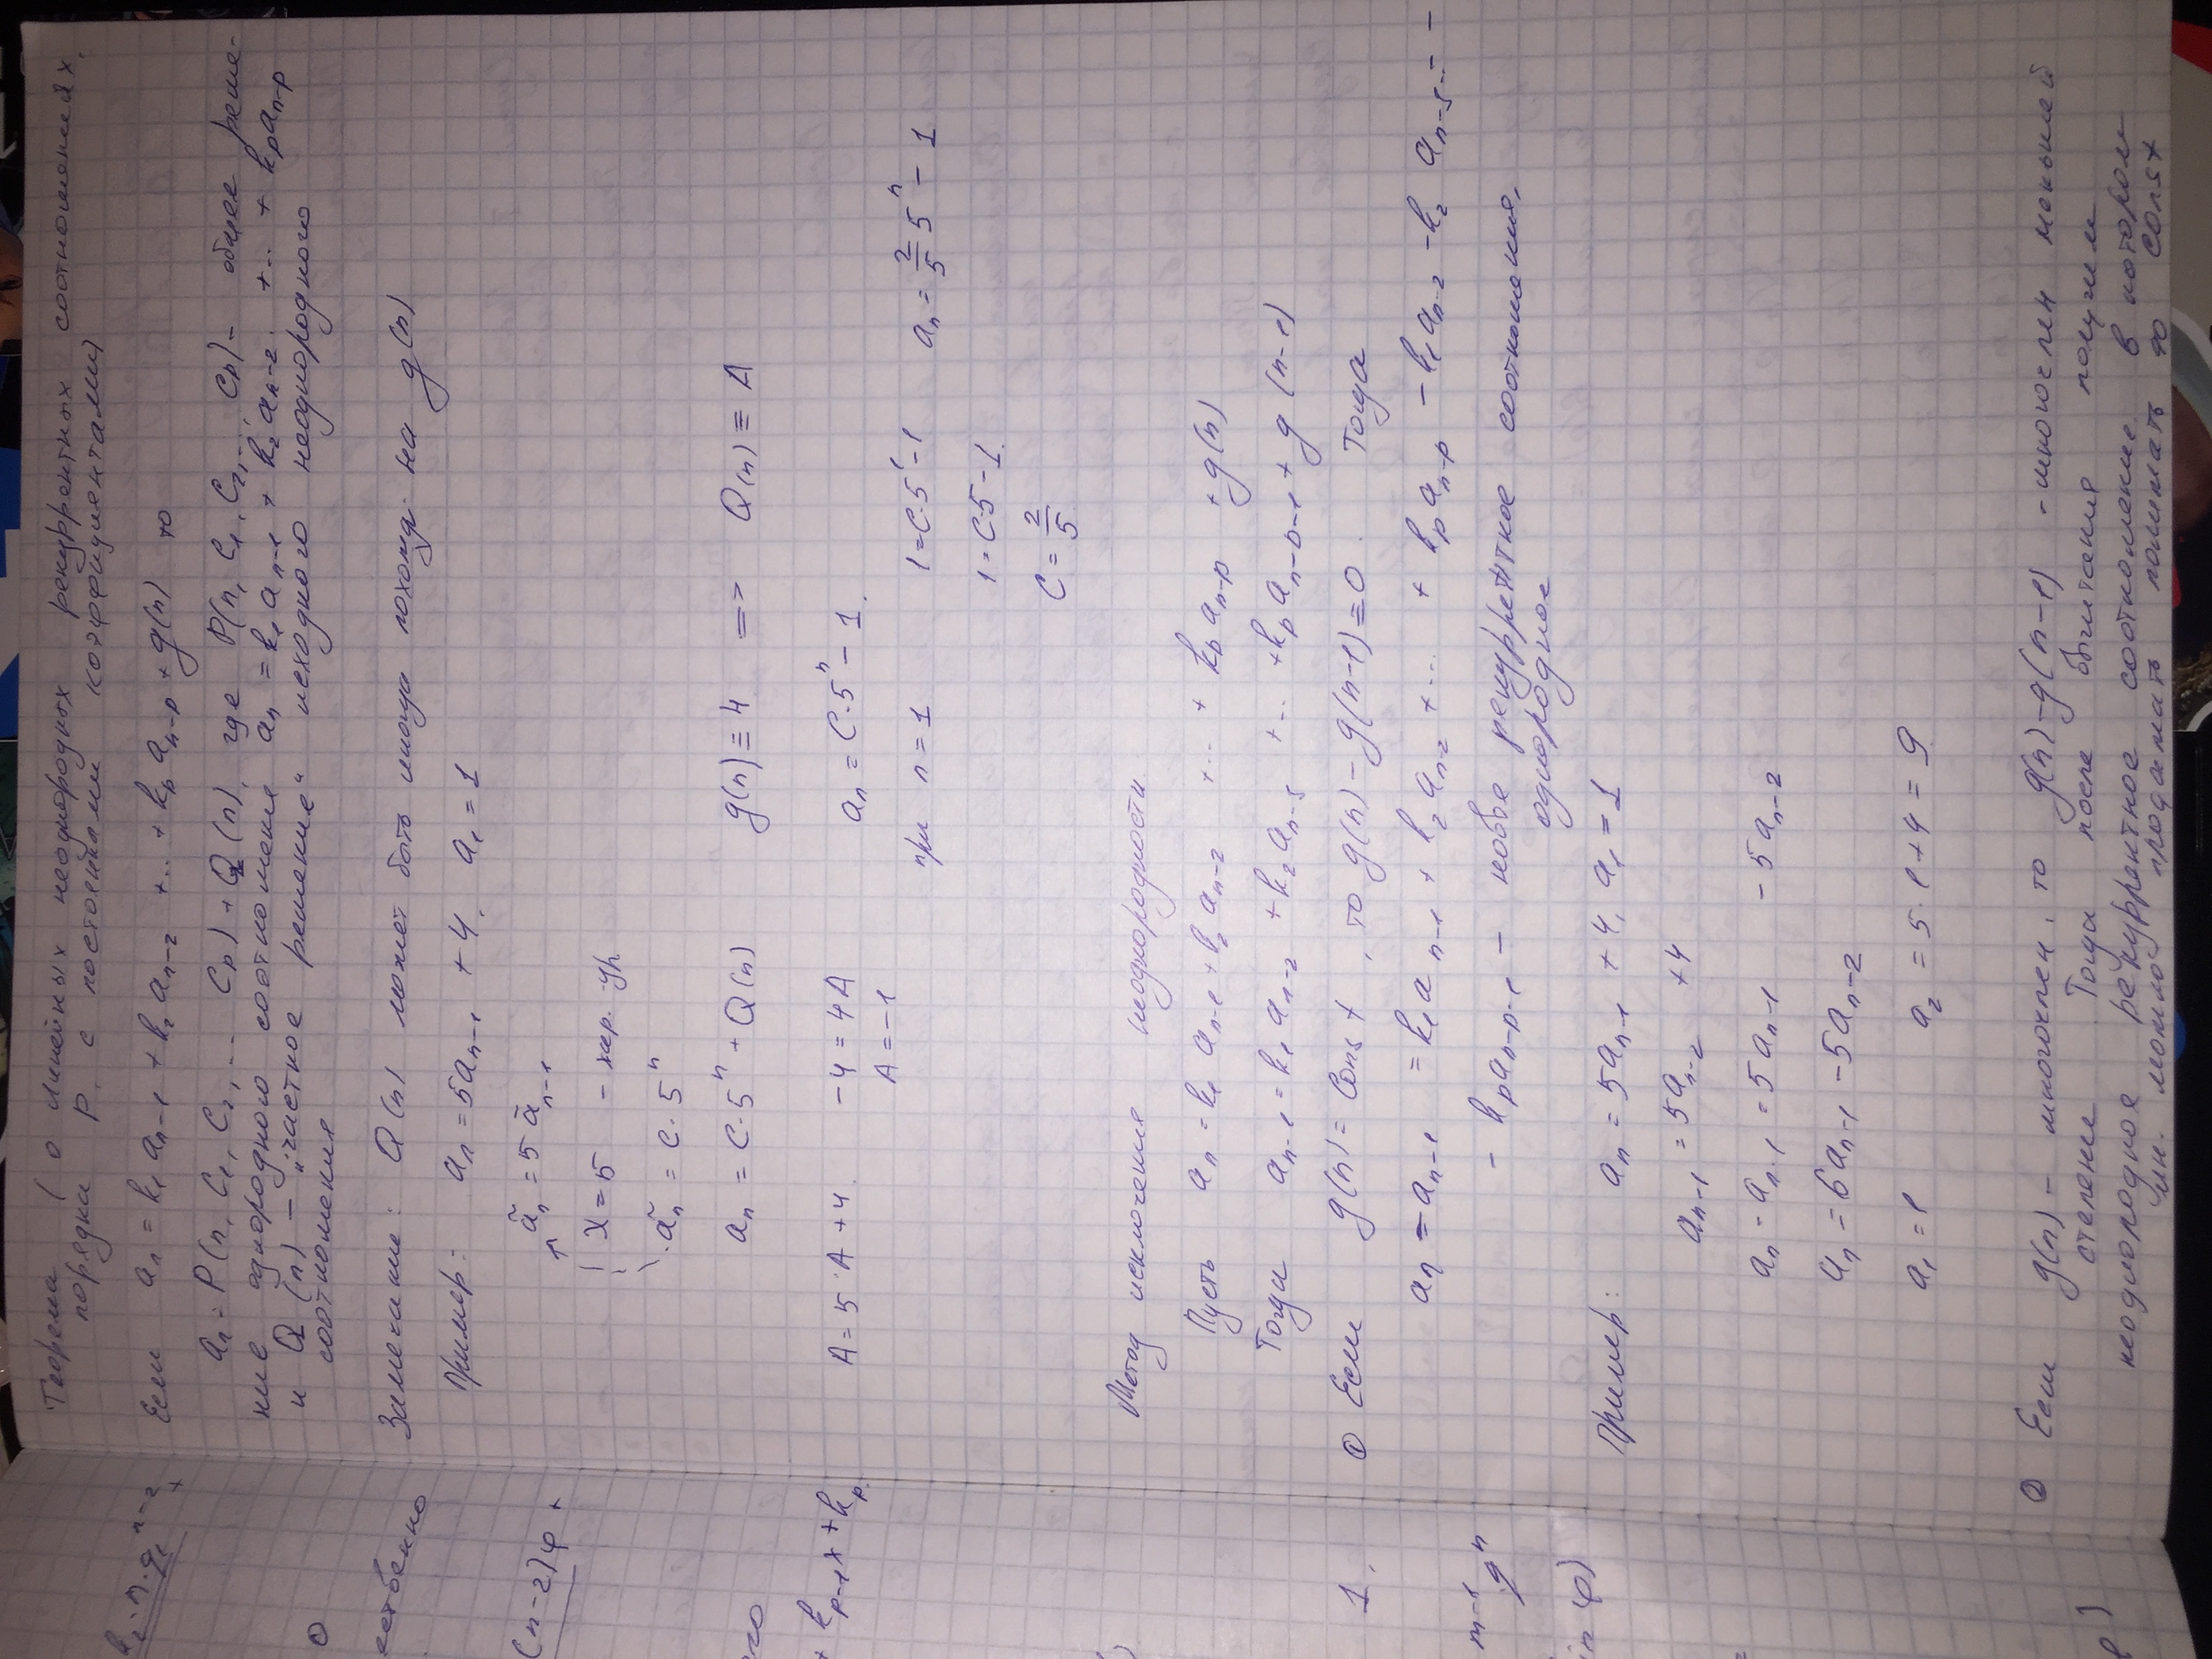 Теорема (о линейных неоднородных рекуррентных соотношениях
порядка p с постоянными коэффициентами)
Если aₙ = k₁aₙ₋₁ + k₂aₙ₋₂ + ... + kₚaₙ₋ₚ + g(n) то
aₙ = P(n, C₁, C₂, ... Cₚ) + Q(n), где P(n, C₁, C₂, ..., Cₚ) – общее реше-
ние однородного соотношения aₙ = k₁aₙ₋₁ + k₂aₙ₋₂ + ... + kₚaₙ₋ₚ
и Q(n) – „частное решение“ исходного неоднородного
соотношения
Замечание: Q(n) может быть иногда похожа на g(n)
Пример: aₙ = 5aₙ₋₁ + 4, a₁ = 1
ãₙ = 5ãₙ₋₁
x = 5 – хар. ур
ãₙ = C·5ⁿ
aₙ = C·5ⁿ + Q(n) g(n) ≡ 4 => Q(n) ≡ A
A = 5·A + 4 -4 = 4A aₙ = C·5ⁿ - 1.
A = -1
при n = 1 1 = C·5¹ - 1 aₙ = 2/5 5ⁿ - 1
1 = C·5 - 1.
C = 2/5
Метод исключения неоднородности
Пусть aₙ = k₁aₙ₋₁ + k₂aₙ₋₂ + ... + kₚaₙ₋ₚ + g(n)
Тогда aₙ₋₁ = k₁aₙ₋₂ + k₂aₙ₋₃ + ... + kₚaₙ₋ₚ₋₁ + g(n-1)
① Если g(n) = Const, то g(n) - g(n-1) ≡ 0. Тогда
aₙ - aₙ₋₁ = k₁aₙ₋₁ + k₂aₙ₋₂ + ... + kₚaₙ₋ₚ - k₁aₙ₋₂ - k₂aₙ₋₃ - ... -
- kₚaₙ₋ₚ₋₁ – новое рекуррентное соотношения,
однородное
Пример: aₙ = 5aₙ₋₁ + 4, a₁ = 1
aₙ₋₁ = 5aₙ₋₂ + 4
aₙ - aₙ₋₁ = 5aₙ₋₁ - 5aₙ₋₂
aₙ = 6aₙ₋₁ - 5aₙ₋₂
a₁ = 1 a₂ = 5·1 + 4 = 9
② Если g(n) – многочлен, то g(n) - g(n-1) – многочлен меньшей
степени Тогда после вычитания получим
неоднородное рекуррентное соотношение в котором
мн. можно понижать до const